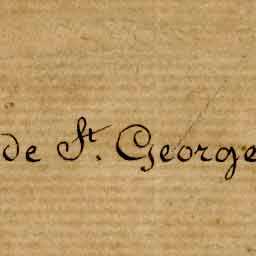 de St. George